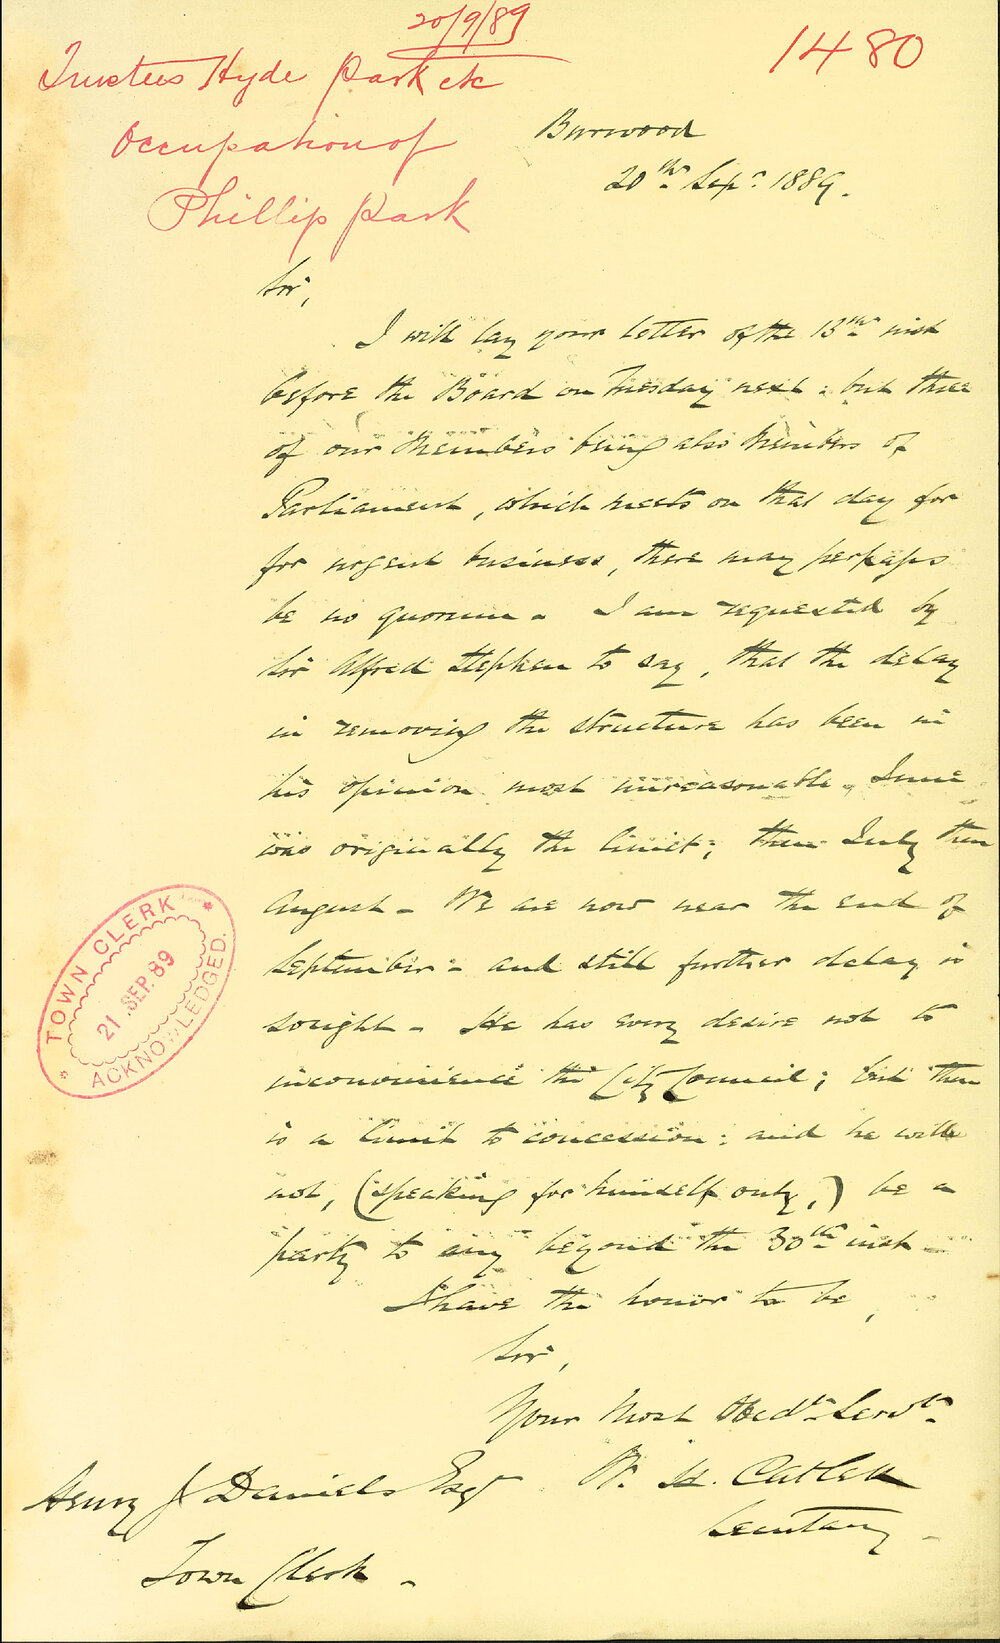 20/9/89
1480
Trustees Hyde Park etc
Occupation of
Phillip Park
Burwood
20th Sepr. 1889.
Sir,
I will lay your letter of the 13th inst
before the Board on Tuesday next: but three
of our Members being also Members of
Parliament, which meets on that day for
for urgent business, there may perhaps
be no quorum. I am requested by
Sir Alfred Stephen to say, that the delay
in removing the structure has been in
his opinion most unreasonable. June
was originally the limit; then July then
August - We are now near the end of
September - and still further delay is
sought - He has every desire not to
inconvenience the City Council; but there
is a limit to concession: and he will
not, (speaking for himself only,) be a
party to any beyond the 30th inst -
I have the honor to be,
Sir,
Your Most Obedt. Servt.
W. H. Catlett
Secretary -
Henry J Daniels Esq
Town Clerk -
TOWN CLERK
21 SEP. 89
ACKNOWLEDGED.